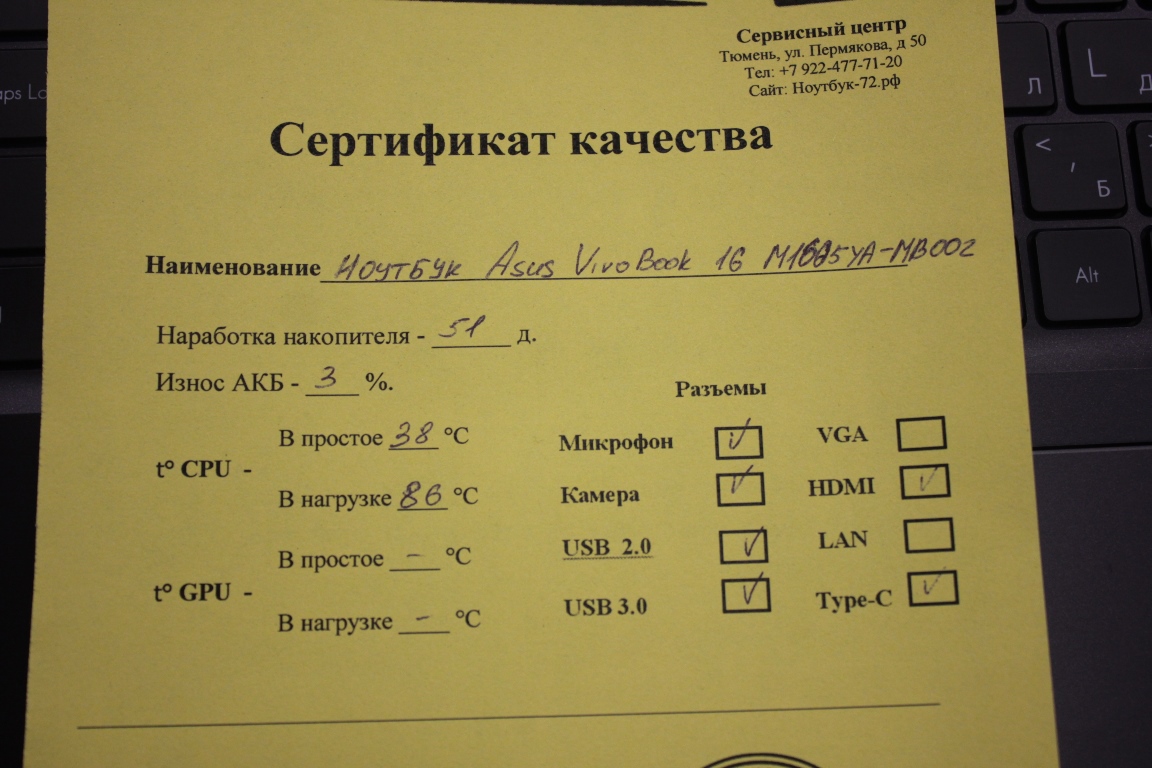 Сервисный центр
Тюмень, ул. Пермякова, д 50
Тел: +7 922-477-71-20
Сайт: Ноутбук-72.рф
Сертификат качества
Наименование Ноутбук Asus VivoBook 16 M1605YA-MB002
Наработка накопителя - 51 д.
Износ АКБ - 3 %.
Разъемы
t° CPU -
В простое 38 °C
В нагрузке 86 °C
t° GPU -
В простое - °C
В нагрузке - °C
Микрофон
Камера
USB 2.0
USB 3.0
VGA
HDMI
LAN
Type-C
aps Lo
Л
L
Д
<
,
Б
Alt